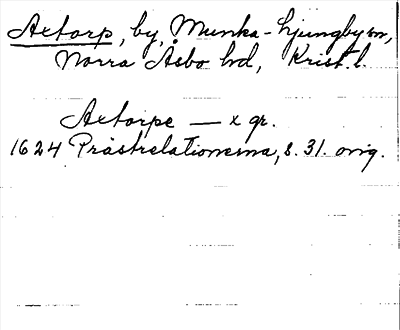 Axtorp, by, Munka-Ljungby sn,
Norra Åsbo hd, Krist. l.
Axtorpe — x gr.
1624 Prästrelationerna, s. 31. orig.